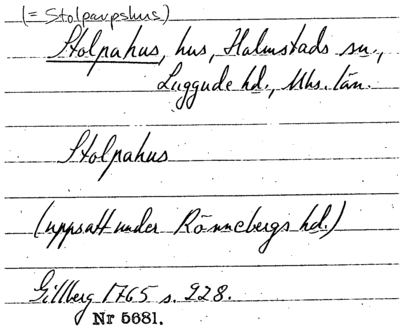 (= Stolparpshus)
Stolpahus, hus, Halmstads sn.,
Luggude hd., Mhs. län.
Stolpahus
(uppsatt under Rönnebergs hd.)
Gillberg 1765 s. 228.
Nr 5681.